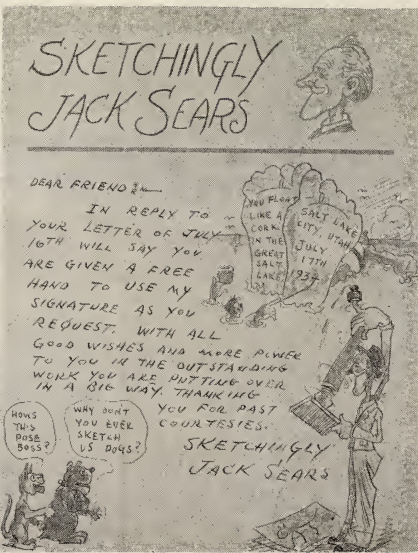 SKETCHINGLY
JACK SEARS
DEAR FRIEND:
IN REPLY TO
YOUR LETTER OF JULY
16TH WILL SAY YOU
ARE GIVEN A FREE
HAND TO USE MY
SIGNATURE AS YOU
REQUEST. WITH ALL
GOOD WISHES AND MORE POWER
TO YOU IN THE OUTSTANDING
WORK YOU ARE PUTTING OVER
IN A BIG WAY. THANKING
YOU FOR PAST
COURTESIES.
SKETCHINGLY
JACK SEARS
YOU FLOAT
LIKE A
CORK
IN THE
GREAT
SALT
LAKE
SALT LAKE
CITY, UTAH
JULY
17TH
1934
HOWS
THIS
POSE
BOSS?
WHY DONT
YOU EVER
SKETCH
US DOGS?